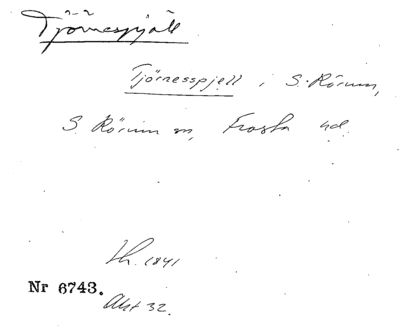 Tjörnespjäll
Tjörnesspjell i S. Rörum,
S. Rörum sn, Frosta hd.
Lh. 1841
Nr 6743.
Akt 32.